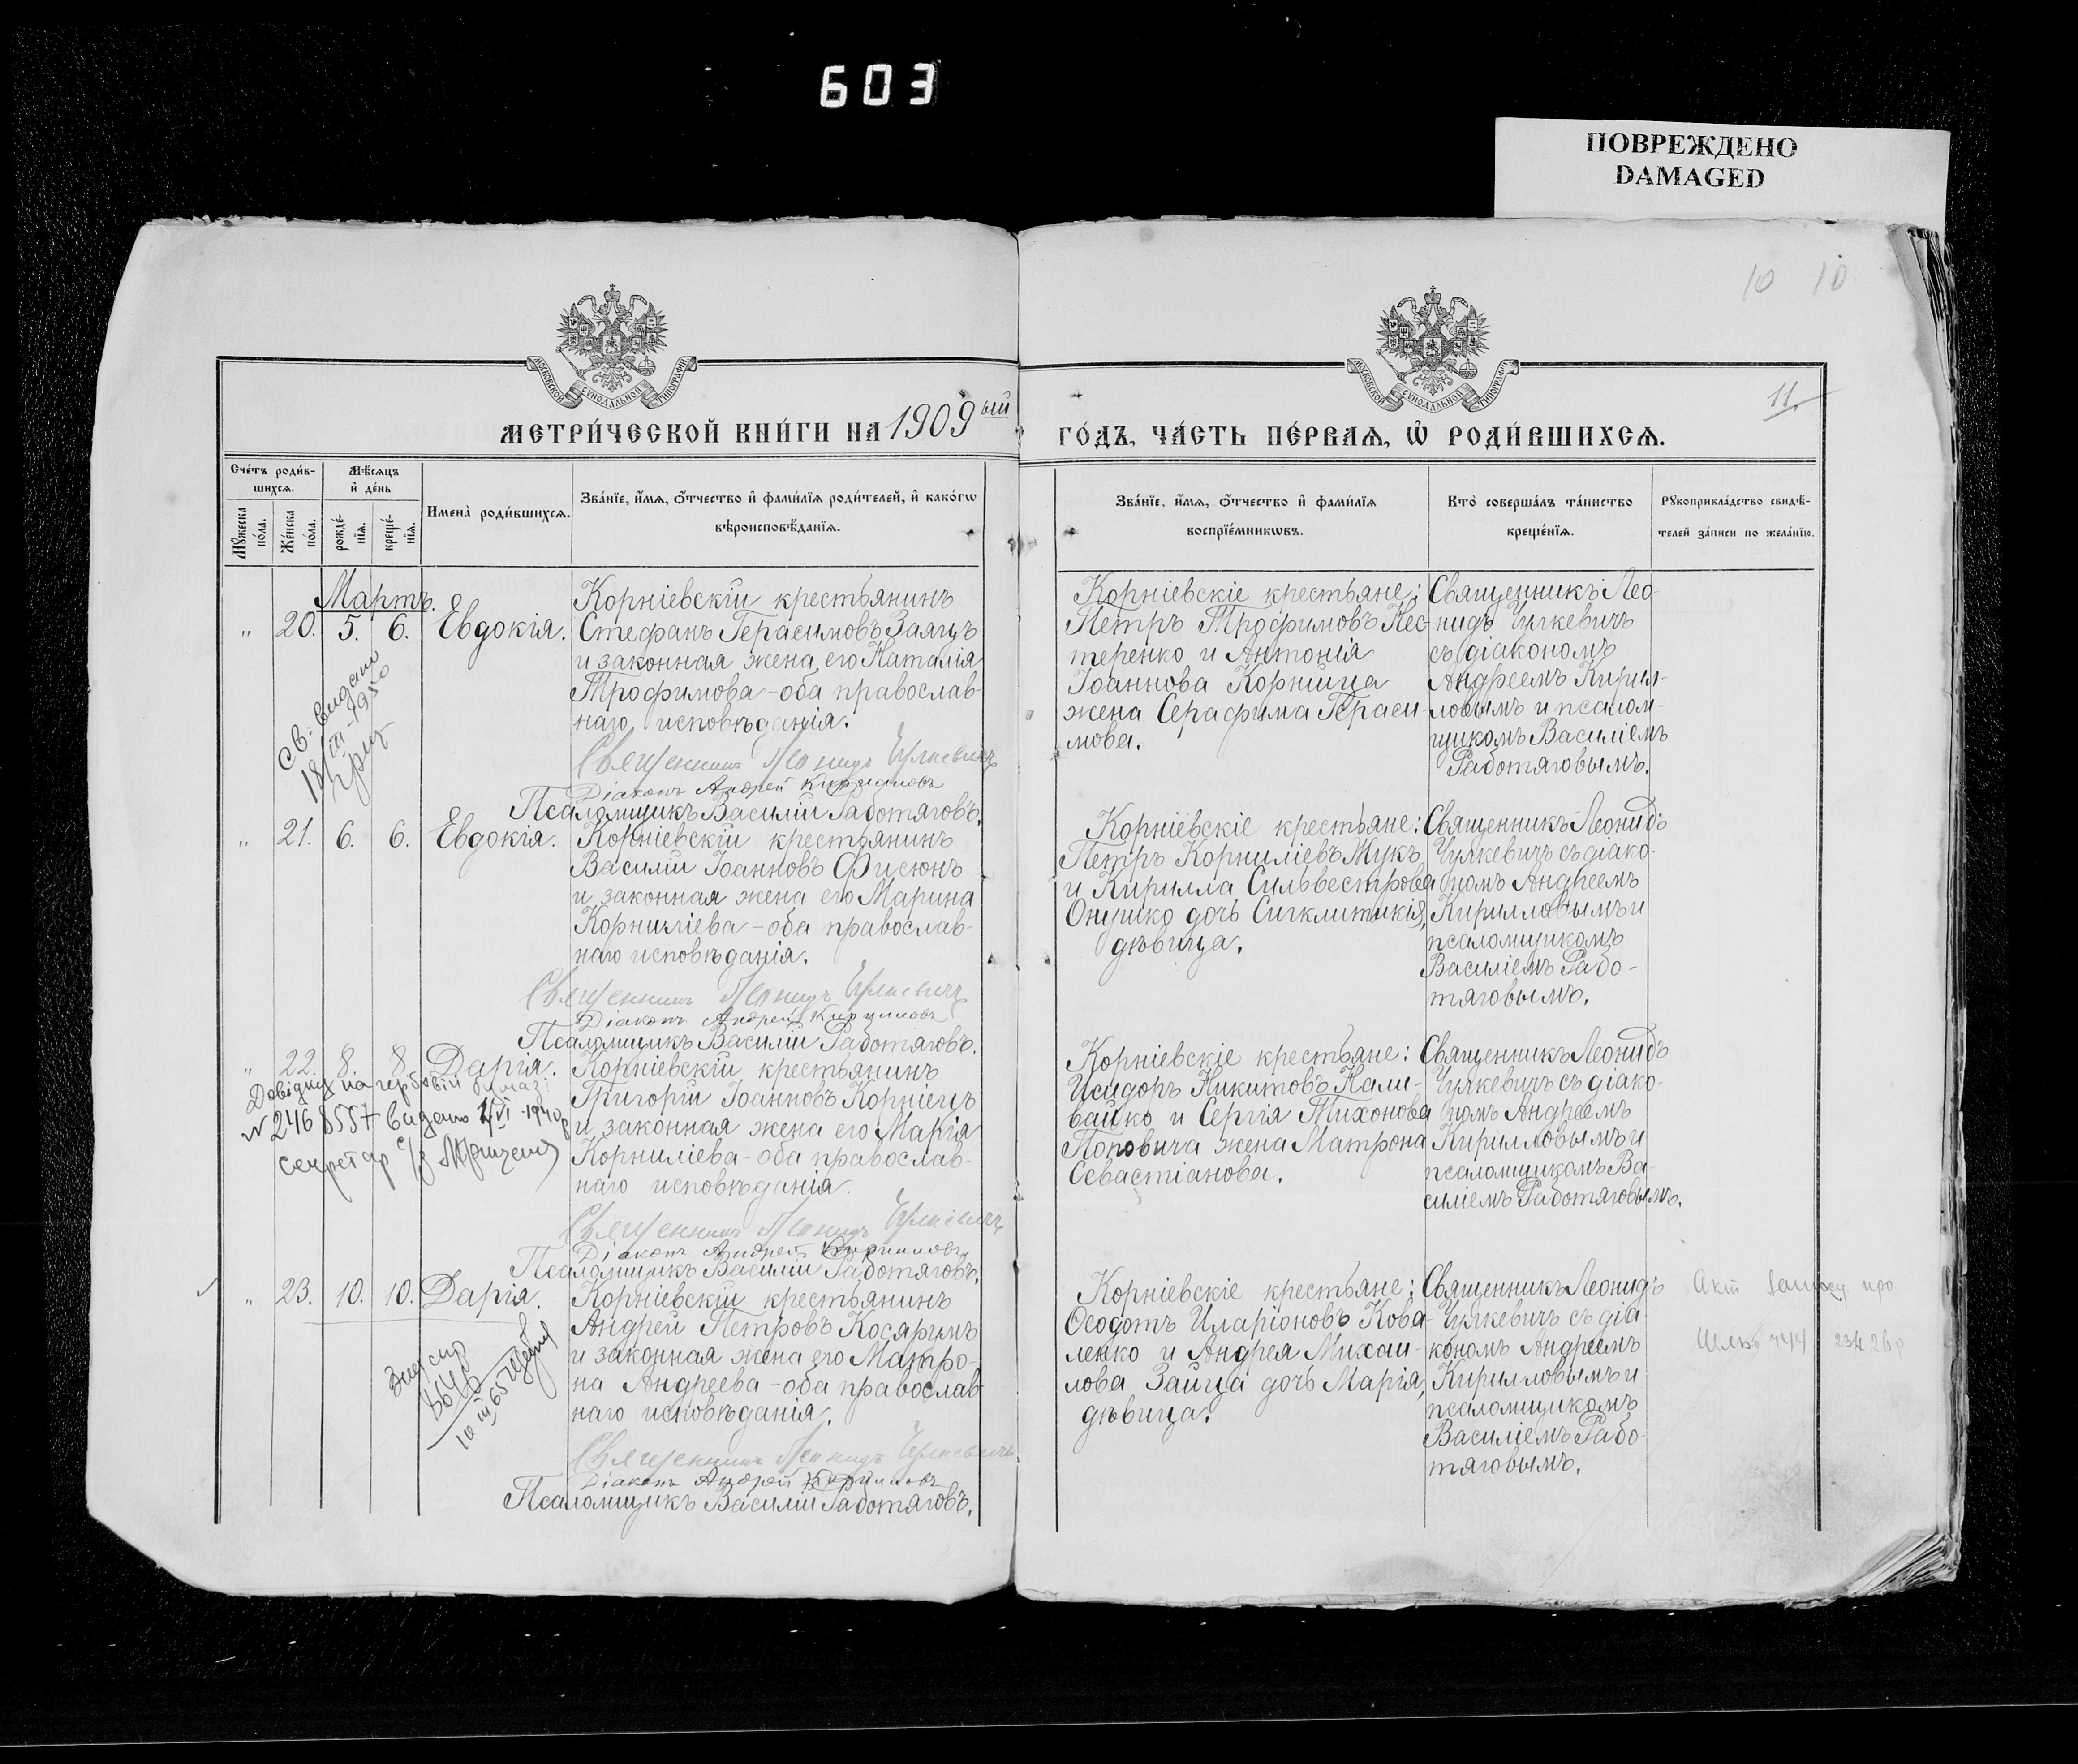 603
ПОВРЕЖДЕНО
DAMAGED
10 10
11.
МОСКОВСКОЙ СѴНОДАЛЬНОЙ ТИПОГРАФІИ
МОСКОВСКОЙ СѴНОДАЛЬНОЙ ТИПОГРАФІИ
МЕТРИ́ЧЕСКОЙ КНИ́ГИ НА 1909ый
ГО́ДЪ, ЧА́СТЬ ПЕ́РВАѦ, Ѡ҆ РОДИ́ВШИХСѦ.
Сче́тъ роди́в-
шихсѧ.
Мѣ́сѧцъ
и҆ де́нь
Мꙋ́жеска
по́ла.
Же́нска
по́ла.
рожде́-
нїѧ.
креще́-
нїѧ.
И҆мена̀ роди́вшихсѧ.
Зва́нїе, и҆́мѧ, ѻ҆́тчество и҆ фами́лїѧ роди́телей, и҆ како́гѡ
вѣроисповѣ́данїѧ.
Зва́нїе, и҆́мѧ, ѻ҆́тчество и҆ фами́лїѧ
воспрїе́мникѡвъ.
Кто̀ соверша́лъ та́инство
креще́нїѧ.
Рꙋкоприкла́дство свидѣ́-
телей за́писи по жела́нїю.
Мартъ.
" 20. 5. 6. Евдокія.
Корніевскій крестьянинъ
Стефанъ Герасимовъ Заяцъ
и законная жена его Наталія
Трофимова - оба православ-
наго исповѣданія.
Священникъ Леонидъ Чулкевичъ
Діаконъ Андрей Кирилловъ
Псаломщикъ Василій Работяговъ.
Св. видано
18/III-1950
Корніевскіе крестьяне:
Петръ Трофимовъ Нес-
теренко и Антонія
Іоаннова Корнійца
жена Серафима Гераси-
мова.
Священникъ Лео-
нидъ Чулкевичъ
съ діакономъ
Андреемъ Кирил-
ловымъ и псалом-
щикомъ Василіемъ
Работяговымъ.
" 21. 6. 6. Евдокія.
Корніевскій крестьянинъ
Василій Іоанновъ Фисюнъ
и законная жена его Марина
Корниліева - оба православ-
наго исповѣданія.
Священникъ Леонидъ Чулкевичъ
Діаконъ Андрей Кирилловъ
Псаломщикъ Василій Работяговъ.
Корніевскіе крестьяне:
Петръ Корниліевъ Жукъ
и Кирилла Сильвестрова
Онушко дочь Сигклитикія,
дѣвица.
Священникъ Леонидъ
Чулкевичъ съ діако-
номъ Андреемъ
Кирилловымъ и
псаломщикомъ
Василіемъ Рабо-
тяговымъ.
" 22. 8. 8. Дарія.
Довідку на гербовій бумазі
№ 2468557 видано
секретар с/р
Корніевскій крестьянинъ
Григорій Іоанновъ Корніецъ
и законная жена его Марія
Корниліева - оба православ-
наго исповѣданія.
Священникъ Леонидъ Чулкевичъ
Діаконъ Андрей Кирилловъ
Псаломщикъ Василій Работяговъ.
Корніевскіе крестьяне:
Исидоръ Никитовъ Нали-
вайко и Сергія Тихонова
Поповича жена Матрона
Севастіанова.
Священникъ Леонидъ
Чулкевичъ съ діако-
номъ Андреемъ
Кирилловымъ и
псаломщикомъ Ва-
силіемъ Работяговымъ.
" 23. 10. 10. Дарія.
Корніевскій крестьянинъ
Андрей Петровъ Косяримъ
и законная жена его Матро-
на Андреева - оба православ-
наго исповѣданія.
Священникъ Леонидъ Чулкевичъ
Діаконъ Андрей Кирилловъ
Псаломщикъ Василій Работяговъ.
Корніевскіе крестьяне:
Ѳеодотъ Иларіоновъ Кова-
ленко и Андрея Михаи-
лова Зайца дочь Марія,
дѣвица.
Священникъ Леонидъ
Чулкевичъ съ діа-
кономъ Андреемъ
Кирилловымъ и
псаломщикомъ
Василіемъ Рабо-
тяговымъ.
Акт запису про